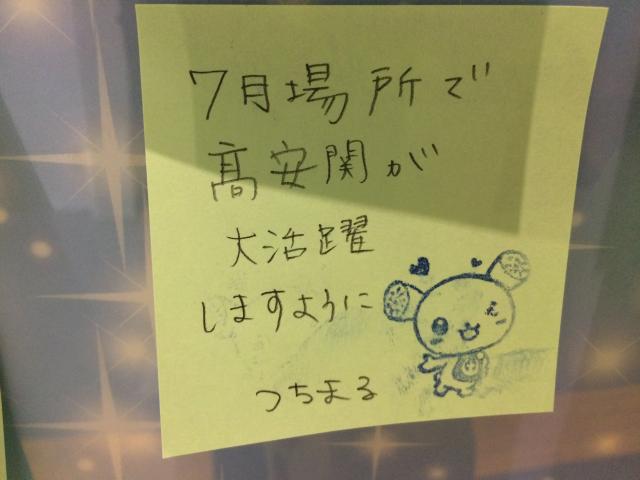 7月場所で
髙安関が
大活躍
しますように
つちまる